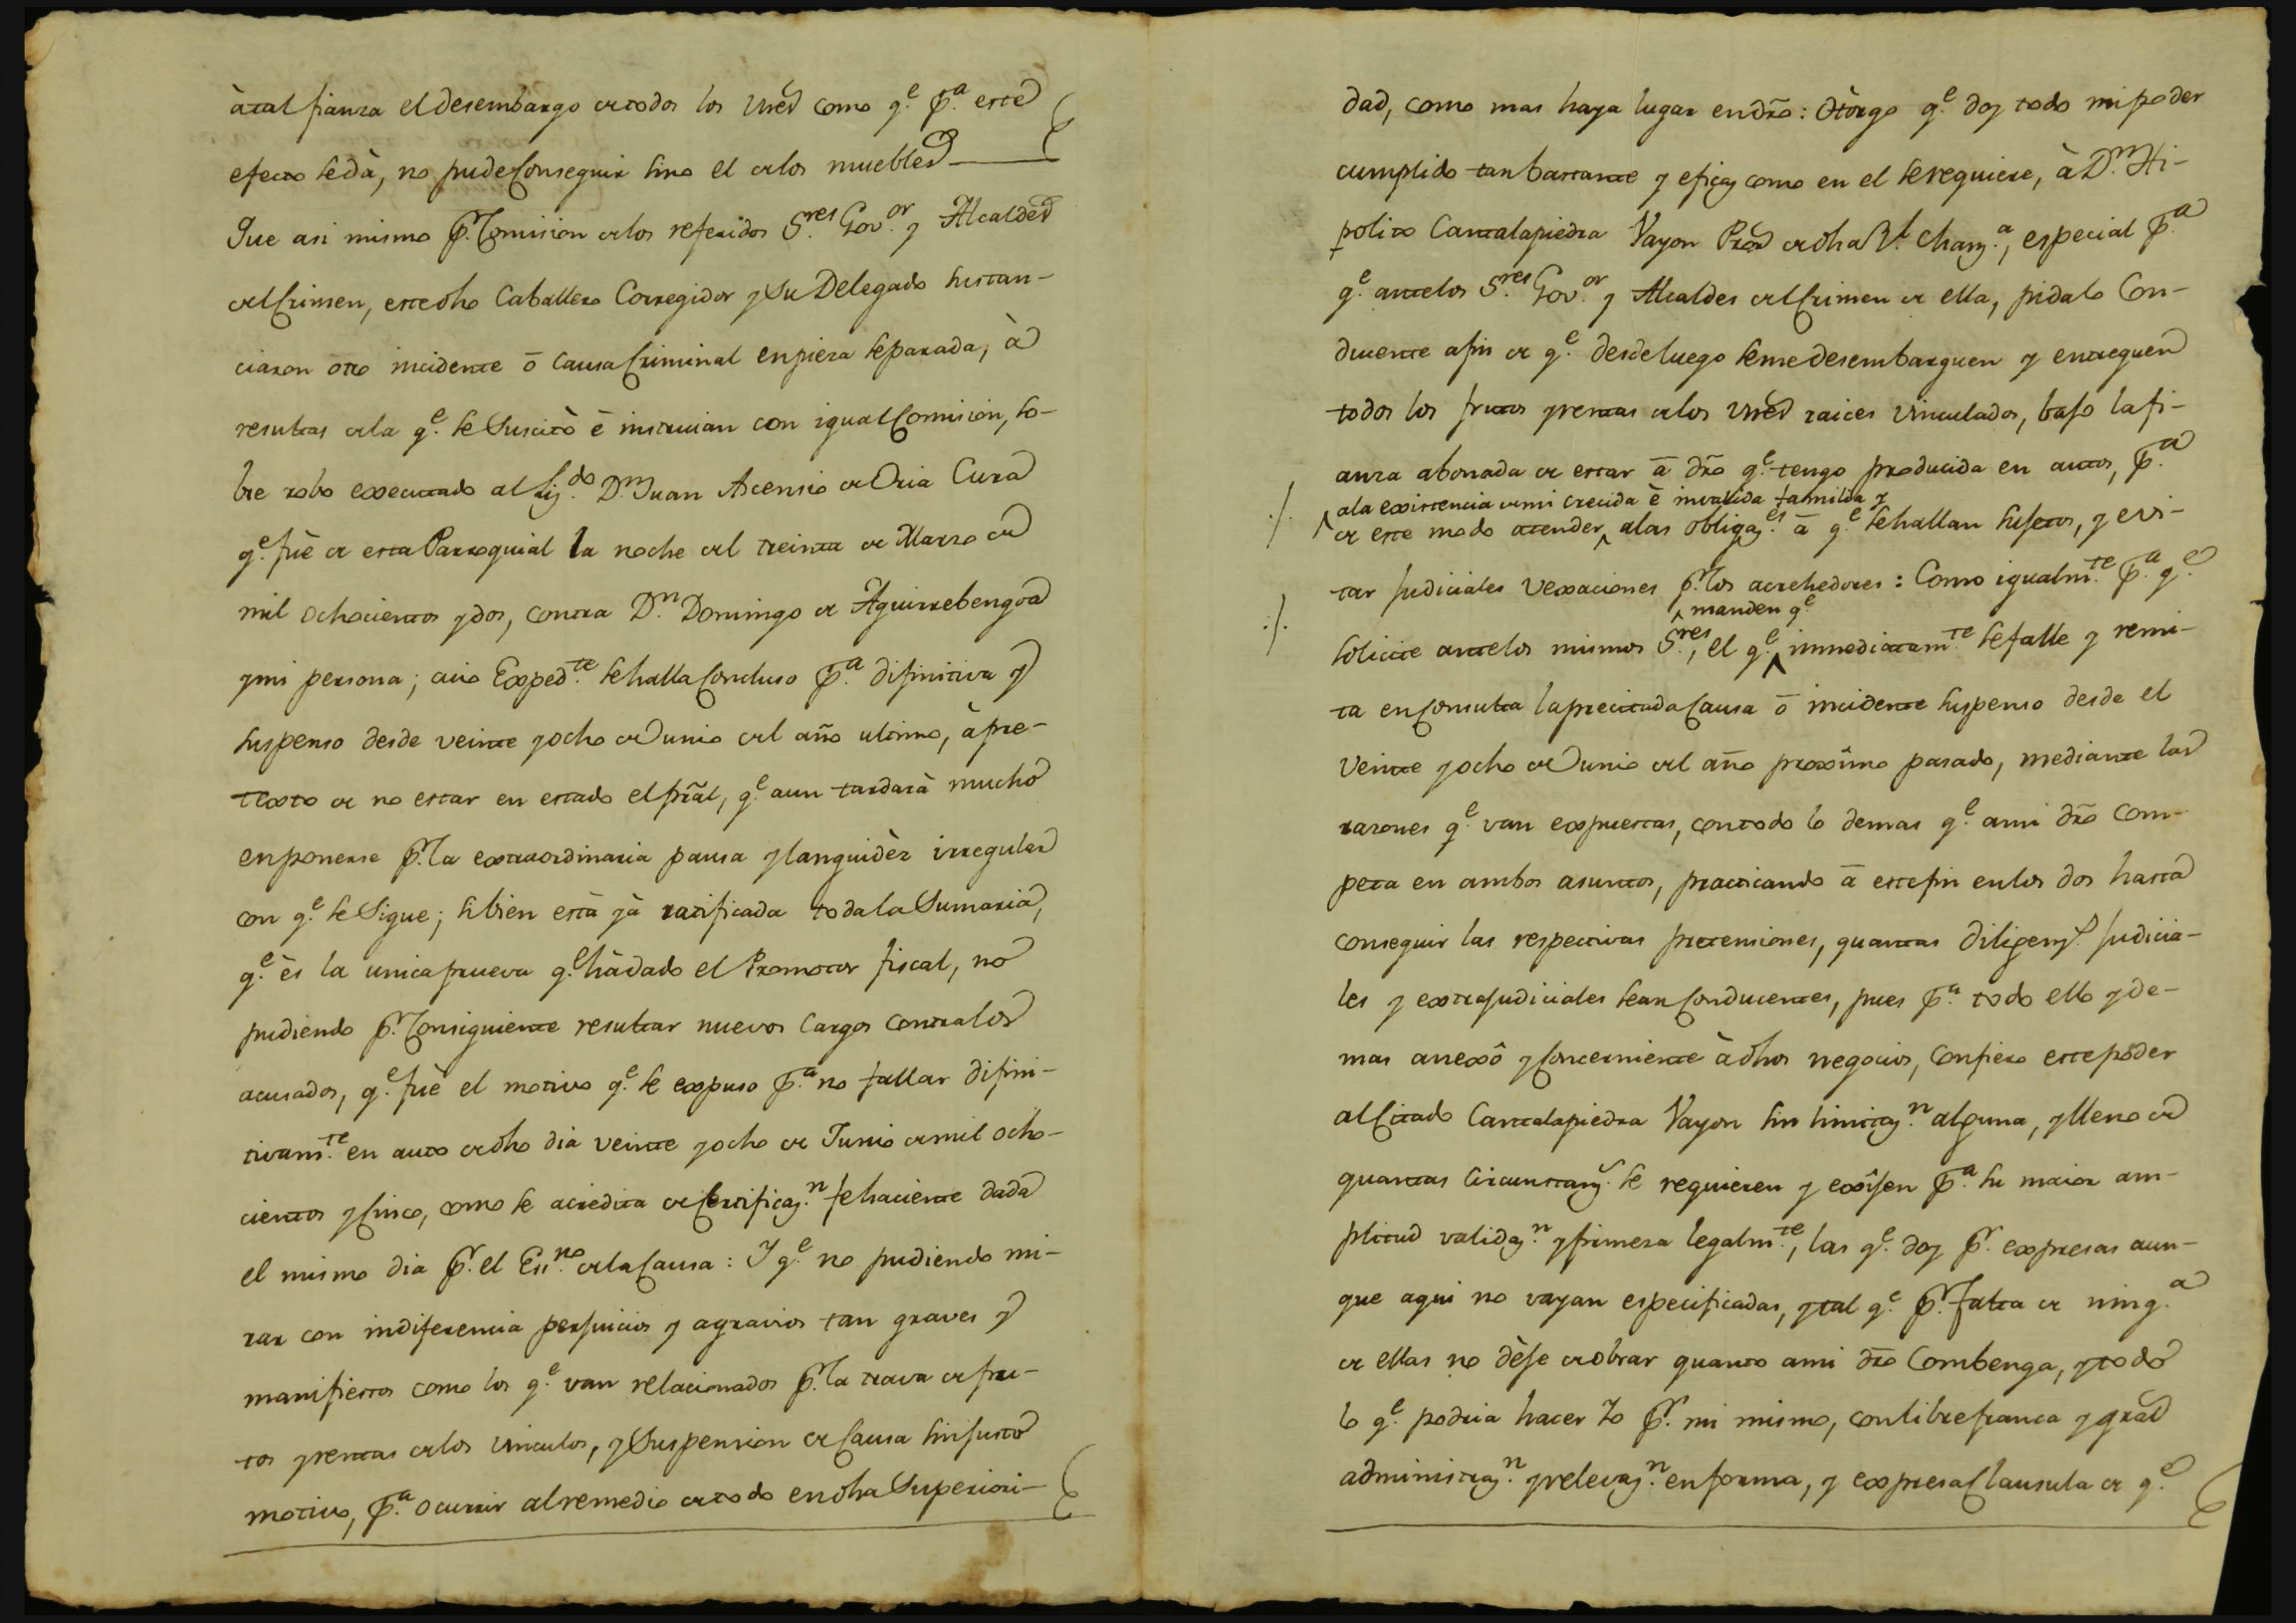 à tal fianza el desembargo de todos los Vnes como q.e p.a este
efecto se dà, no pude Conseguir sino el de los muebles
Que asi mismo p.r Comision de los referidos S.res Gov.or y Alcaldes
del Crimen, este dho Caballero Corregidor y Su Delegado sustan-
ciaron otro incidente ō causa Criminal en pieza separada, à
resultas de la q.e se Suscitò è instruian con igual Comision, so-
bre robo executado al Liz.do D.n Juan Asensio de Oria Cura
q.e fuè de esta Parroquial la noche del treinta de Marzo de
mil ochocientos y dos, contra D.n Domingo de Aguirrebengoa
y mi persona; cuio Exped.te se halla Concluso p.a difinitiva y
suspenso desde veinte y ocho de Junio del año ultimo, à pre-
texto de no estar en estado el prāl, q.e aun tardarà mucho
en ponerse p.r la extraordinaria pausa y languidèz irregular
con q.e se Sigue; si bien està yà ratificada toda la Sumaria,
q.e ès la unica prueva q.e hà dado el Promotor fiscal, no
pudiendo p.r Consiguiente resultar nuevos Cargos contra los
acusados, q.e fuè el motivo q.e se expuso p.a no fallar difini-
tivam.te en auto de dho dia veinte y ocho de Junio de mil ocho-
cientos y Cinco, como se acredita de Certificaz.n fehaciente dada
el mismo dia p.r el Ess.no de la Causa: Y q.e no pudiendo mi-
rar con indiferencia perjuicios y agravios tan graves y
manifiestos como los q.e van relacionados p.r la trava de fru-
tos y rentas de los vinculos, y Suspension de Causa sin justo
motivo, p.a ocurrir al remedio de todo en dha Superiori-
dad, como mas haya lugar en dro: Otòrgo q.e doy todo mi poder
cumplido tan bastante y eficaz como en el se requiere, à D.n Hi-
polito Cantalapiedra Vayon Pror de dha R.l Chanz.a, especial p.a
q.e ante los S.res Gov.or y Alcaldes del Crimen de ella, pida lo Con-
ducente a fin de q.e desde luego se me desembarguen y entreguen
todos los frutos y rentas de los Vnes raices vinculados, bajo la fi-
anza abonada de estar ā dro q.e tengo producida en autos, p.a
a la existencia de mi crecida è invalida familia y
de este modo atender, a las obligaz.es ā q.e se hallan sujetos, y evi-
tar judiciales vexaciones p.r los acrehedores: Como igualm.te p.a q.e
manden q.e
solicite ante los mismos S.res, el q.e inmediatam.te se falle y remi-
ta en Consulta la precitada Causa ō incidente suspenso desde el
veinte y ocho de Junio del año proxîmo pasado, mediante las
razones q.e van expuestas, con todo lo demas q.e a mi dro com-
peta en ambos asuntos, practicando ā este fin en los dos hasta
conseguir las respectivas pretensiones, quantas diligenz.s judicia-
les y extrajudiciales sean Conducentes, pues p.a todo ello y de-
mas anexô y Concerniente à dhos negocios, confiero este poder
al Citado Cantalapiedra Vayon sin limitaz.n alguna, y lleno de
quantas circunstanz.s se requieren y exîjen p.a su maior am-
plitud validaz.n y firmeza legalm.te, las q.e doy p.r expresas aun-
que aqui no vayan especificadas, y tal q.e p.r falta de ning.a
de ellas no dèje de obrar quanto a mi dro Combenga, y todo
lo q.e podria hacer Yo p.r mi mismo, con libre franca y gral
administraz.n y relevaz.n en forma, y expresa Clausula de q.e